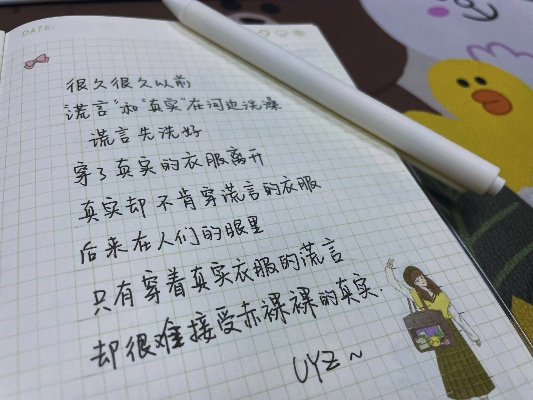 DATE:
很久很久以前
谎言"和"真实"在河边洗澡
谎言先洗好
穿了真实的衣服离开
真实却不肯穿谎言的衣服
后来在人们的眼里
只有穿着真实衣服的谎言
却很难接受赤裸裸的真实.
UYZ~